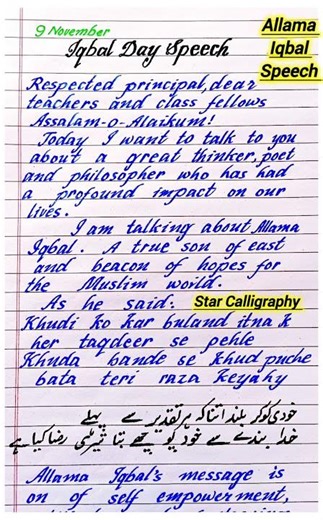 9 November
Iqbal Day Speech
Allama
Iqbal
Speech
Respected principal, dear
teachers and class fellows
Assalam-o-Alaikum!
Today I want to talk to you
about a great thinker, poet
and philosopher who has had
a profound impact on our
lives.
I am talking about Allama
Iqbal. A true son of east
and beacon of hopes for
the Muslim world.
As he said:
Star Calligraphy
Khudi ko kar buland itna k
her taqdeer se pehle
Khuda bande se khud puche
bata teri raza keyahy
خودی کو کر بلند اتنا کہ ہر تقدیر سے پہلے
خدا بندے سے خود پوچھے بتا تیری رضا کیا ہے
Allama Iqbal's message is
on of self empowerment,